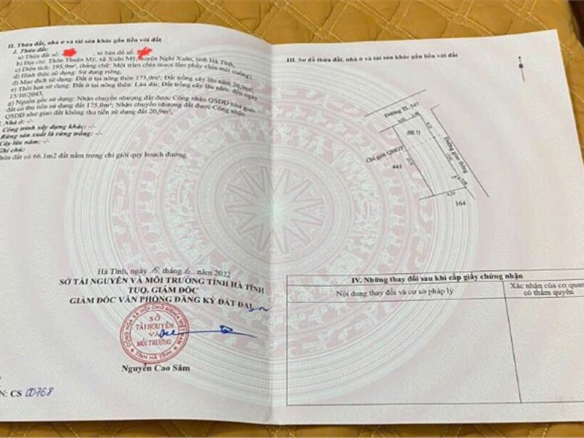 II. Thửa đất, nhà ở và tài sản khác gắn liền với đất
1. Thửa đất:
a) Thửa đất số: , tờ bản đồ số:
b) Địa chỉ: Thôn Thuận Mỹ, xã Xuân Mỹ, huyện Nghi Xuân, tỉnh Hà Tĩnh,
c) Diện tích: 195,9m², (bằng chữ: Một trăm chín mươi lăm phẩy chín mét vuông),
d) Hình thức sử dụng: Sử dụng riêng,
đ) Mục đích sử dụng: Đất ở tại nông thôn 175,0m²; Đất trồng cây lâu năm 20,9m²,
e) Thời hạn sử dụng: Đất ở tại nông thôn: Lâu dài; Đất trồng cây lâu năm: đến ngày
15/10/2043,
g) Nguồn gốc sử dụng: Nhận chuyển nhượng đất được Công nhận QSDĐ như giao
đất có thu tiền sử dụng đất 175,0m²; Nhận chuyển nhượng đất được Công nhận
QSDĐ như giao đất không thu tiền sử dụng đất 20,9m².
2. Nhà ở: -/-
Công trình xây dựng khác: -/-
Rừng sản xuất là rừng trồng: -/-
Cây lâu năm: -/-
Ghi chú:
Thửa đất có 66.1m2 đất nằm trong chỉ giới quy hoạch đường.
Hà Tĩnh, ngày tháng năm 2022
SỞ TÀI NGUYÊN VÀ MÔI TRƯỜNG TỈNH HÀ TĨNH
TUQ. GIÁM ĐỐC
GIÁM ĐỐC VĂN PHÒNG ĐĂNG KÝ ĐẤT ĐAI
SỞ
TÀI NGUYÊN
VÀ
MÔI TRƯỜNG
Nguyễn Cao Sâm
N: CS 00768
III. Sơ đồ thửa đất, nhà ở và tài sản khác gắn liền với đất
Đường TL 547
Chỉ giới QHGT
Đường giao thông
441
164
IV. Những thay đổi sau khi cấp giấy chứng nhận
Nội dung thay đổi và cơ sở pháp lý
Xác nhận của cơ quan
có thẩm quyền